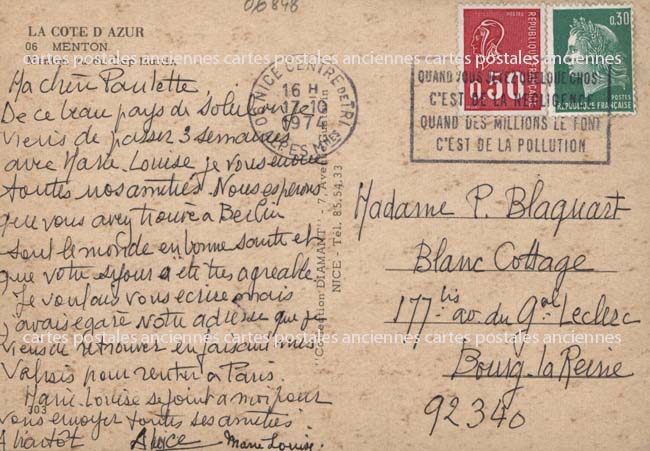 06848
LA COTE D'AZUR
06 MENTON
Ma chère Paulette,
De ce beau pays du soleil où je
viens de passer 3 semaines
avec Marie-Louise je vous envoie
toutes nos amitiés. Nous espérons
que vous avez trouvé à Berlin
tout le monde en bonne santé et
que votre séjour a été très agréable
Je voulais vous écrire mais
j'avais égaré votre adresse que je
viens de retrouver en faisant mes
valises pour rentrer à Paris.
Marie Louise se joint à moi pour
vous envoyer toutes ses amitiés
A bientôt Alice Marie Louise.
303
"Collection DIAMANT" - 7, Avenue
NICE - Tél. 85.54.33
06 NICE CENTRE de TRI
16 H
17-10
1974
ALPES Mmes
QUAND VOUS JETEZ QUELQUE CHOSE
C'EST DE LA NÉGLIGENCE
QUAND DES MILLIONS LE FONT
C'EST DE LA POLLUTION
0.50
RÉPUBLIQUE FRANÇAISE
0,30
POSTES
RÉPUBLIQUE FRANÇAISE
Madame P. Blaquart
Blanc Cottage
177 bis av. du Gal Leclerc
Bourg-la-Reine
92340
cartes postales anciennes cartes postales anciennes cartes postales anciennes
cartes postales anciennes cartes postales anciennes cartes postales anciennes
cartes postales anciennes cartes postales anciennes cartes postales anciennes